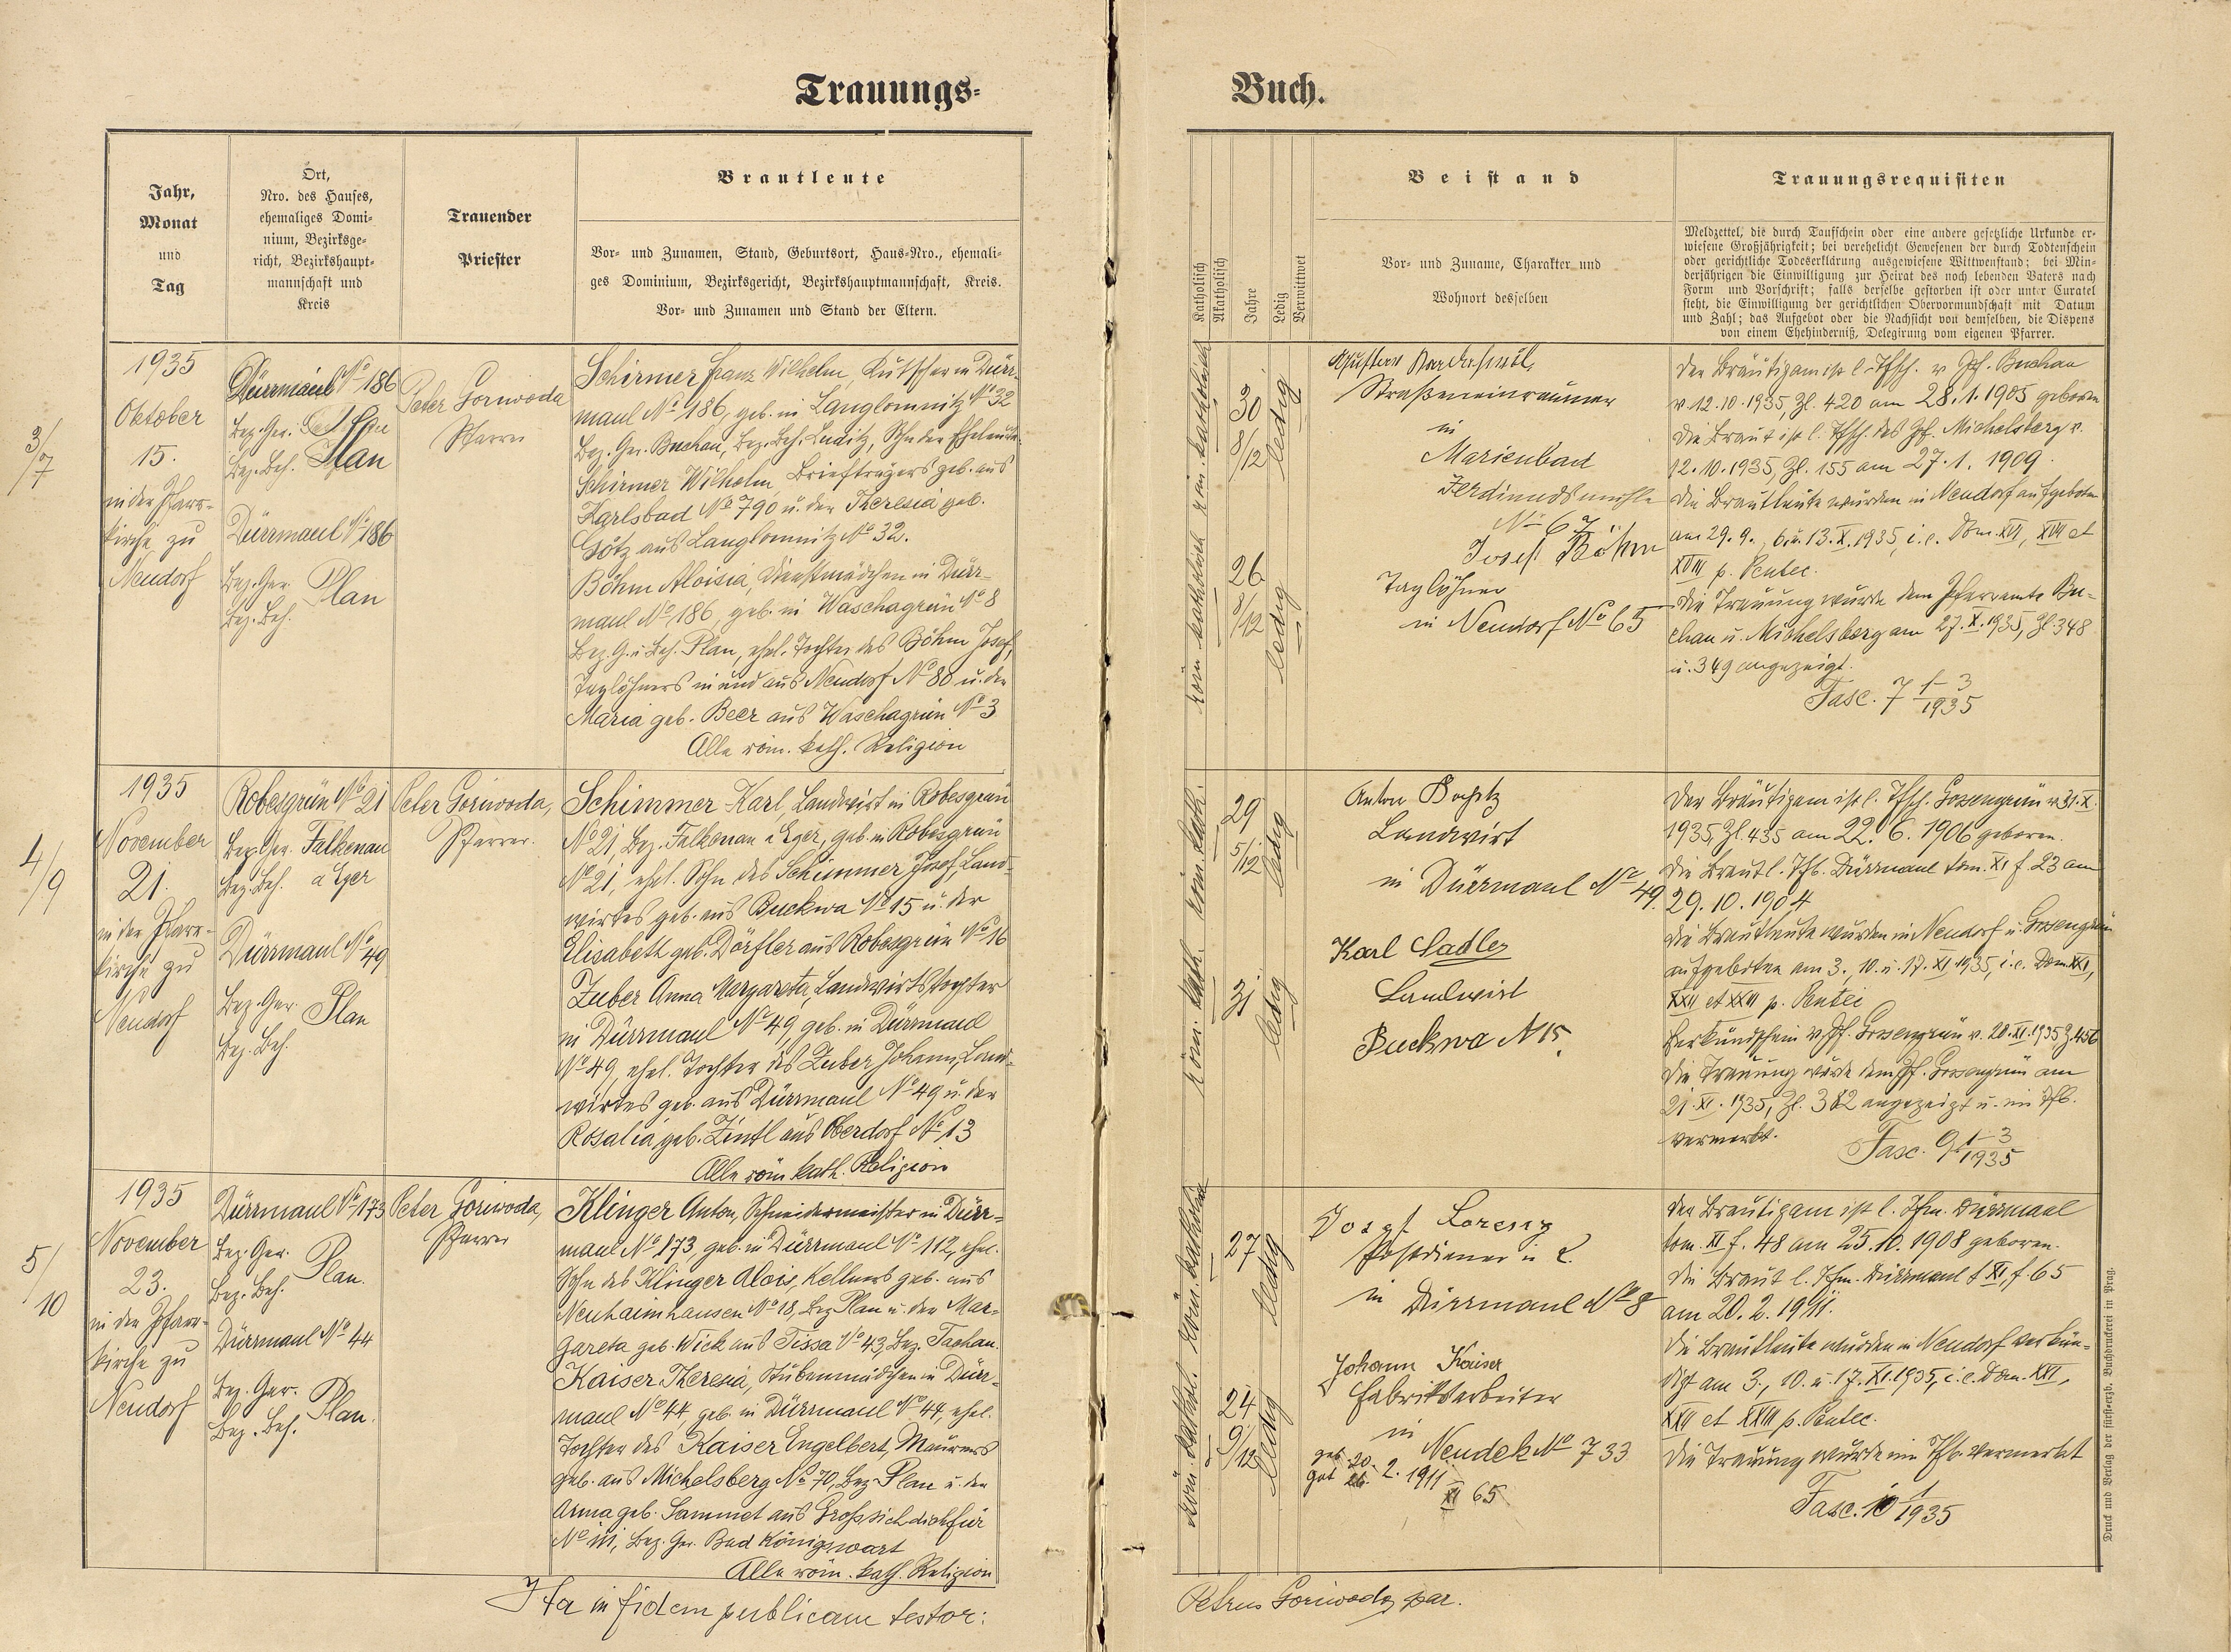 Trauungs-
Buch.
Jahr,
Monat
und
Tag
Ort,
Nro. des Hauses,
ehemaliges Domi-
nium, Bezirksge-
richt, Bezirkshaupt-
mannschaft und
Kreis
Trauender
Priester
Brautleute
Vor- und Zunamen, Stand, Geburtsort, Haus-Nro., ehemali-
ges Dominium, Bezirksgericht, Bezirkshauptmannschaft, Kreis.
Vor- und Zunamen und Stand der Eltern.
Katholisch
Akatholisch
Jahre
Ledig
Verwittwet
Beistand
Vor- und Zuname, Charakter und
Wohnort desselben
Trauungsrequisiten
Meldzettel, die durch Taufschein oder eine andere gesetzliche Urkunde er-
wiesene Großjährigkeit; bei verehelicht Gewesenen der durch Todtenschein
oder gerichtliche Todeserklärung ausgewiesene Wittwenstand; bei Min-
derjährigen die Einwilligung zur Heirat des noch lebenden Vaters nach
Form und Vorschrift; falls derselbe gestorben ist oder unter Curatel
steht, die Einwilligung der gerichtlichen Obervormundschaft mit Datum
und Zahl; das Aufgebot oder die Nachsicht von demselben, die Dispens
von einem Ehehinderniß, Delegirung vom eigenen Pfarrer.
3/7
1935
Oktober
15.
in der Pfarr-
kirche zu
Neudorf
Dürrmaul No 186
Bez. Ger.
Bez. Beh. Plan
Dürrmaul No 186
Bez. Ger. Plan
Bez. Beh.
Peter Goriwoda
Pfarrer
Schirmer Franz Wilhelm, Kutscher in Dürr-
maul No 186, geb. in Langlomnitz No 32
Bez. Ger. Buchau, Bez. Beh. Luditz, Sohn der Eheleute
Schirmer Wilhelm, Briefträgers geb. aus
Karlsbad No 790 u. der Theresia geb.
Götz aus Langlomnitz No 32.
Böhm Aloisia, Dienstmädchen in Dürr-
maul No 186, geb. in Waschagrün No 8
Bez. G. u. Beh. Plan, ehel. Tochter des Böhm Josef,
Taglöhners in und aus Neudorf No 80 u. der
Maria geb. Beer aus Waschagrün No 3
Alle röm. kath. Religion
röm. katholisch
30
8/12
ledig
röm. katholisch
26
8/12
ledig
Straßeneinräumer
in
Marienbad
Ferdinandsmühle
No 67
Josef Böhm
Taglöhner
in Neudorf No 65
Der Bräutigam ist l. Tfsch. v. Pf. Buchau
v. 12.10.1935, Zl. 420 am 28.1.1905 geboren
Die Braut ist l. Tfsch. des Pf. Michelsberg v.
12.10.1935, Zl. 155 am 27.1.1909.
Die Brautleute wurden in Neudorf aufgeboten
am 29.9., 6. u. 13.X.1935, i.e. Dom. XVI, XVII et
XVIII p. Pentec.
Die Trauung wurde dem Pfarramte Bu-
chau u. Michelsberg am 27.X.1935, Zl. 348
u. 349 angezeigt.
Fasc. 7 1-3/1935
4/9
1935
November
21.
in der Pfarr-
kirche zu
Neudorf
Robesgrün No 21
Bez. Ger. Falkenau
Bez. Beh. a Eger
Dürrmaul No 49
Bez. Ger. Plan
Bez. Beh.
Peter Goriwoda,
Pfarrer.
Schimmer Karl, Landwirt in Robesgrün
No 21, Bez. Falkenau a Eger, geb. in Robesgrün
No 21, ehel. Sohn des Schimmer Josef, Land-
wirtes geb. aus Buckwa No 15 u. der
Elisabeth geb. Dörfler aus Robesgrün No 16
Zuber Anna Margareta, Landwirtstochter
in Dürrmaul No 49, geb. in Dürrmaul
No 49, ehel. Tochter des Zuber Johann, Land-
wirtes geb. aus Dürrmaul No 49 u. der
Rosalia geb. Zintl aus Oberdorf No 13
Alle röm. kath. Religion
röm. kath.
29
5/12
ledig
röm. kath.
31
ledig
Anton
Landwirt
in Dürrmaul No 49.
Karl Sadler
Landwirt
Buckwa N 15.
Der Bräutigam ist l. Tfsch. Gossengrün v. 31.X.
1935, Zl. 435 am 22.6.1906 geboren.
Die Braut l. Tfb. Dürrmaul tom. XI f. 23 am
29.10.1904
Die Brautleute wurden in Neudorf u. Gossengrün
aufgeboten am 3., 10. u. 17.XI.1935, i.e. Dom. XXI,
XXII et XXIII p. Pentec
Verkündschein v. Pf. Gossengrün v. 20.XI.1935 Z. 456
Die Trauung wurde dem Pf. Gossengrün am
21.XI.1935, Zl. 382 angezeigt u. im Tfb.
vermerkt.
Fasc. 9 1-3/1935
5/10
1935
November
23.
in der Pfarr-
kirche zu
Neudorf
Dürrmaul No 173
Bez. Ger. Plan.
Bez. Beh.
Dürrmaul No 44
Bez. Ger. Plan.
Bez. Beh.
Peter Goriwoda,
Pfarrer
Klinger Anton, Schneidermeister in Dürr-
maul No 173, geb. in Dürrmaul No 112, ehel.
Sohn des Klinger Alois, Kellners geb. aus
Neuhaimhausen No 18, Bez Plan u. der Mar-
gareta geb. Wick aus Tissa No 43, Bez. Tachau.
Kaiser Theresia, Stubenmädchen in Dürr-
maul No 44, geb. in Dürrmaul No 44, ehel.
Tochter des Kaiser Engelbert, Maurers
geb. aus Michelsberg No 70, Bez Plan u. der
Anna geb. Sammet aus Grossichdichfür
No 111, Bez. Ger. Bad Königswart
Alle röm. kath. Religion
röm. katholisch
27
ledig
röm. kathol.
24
9/12
ledig
Josef Lorenz
Postdiener
in Dürrmaul No 8
Johann Kaiser
Fabriksarbeiter
in
Neudek No 733
geb. 20.
2. 1911
XI 65
Der Bräutigam ist l. Tfm. Dürrmaul
tom. XI f. 48 am 25.10.1908 geboren.
Die Braut l. Tfm. Dürrmaul t XI, f. 65
am 20.2.1911.
Die Brautleute wurden in Neudorf verkün-
digt am 3., 10. u. 17.XI.1935, i.e. Dom. XXI,
XXII et XXIII p. Pentec.
Die Trauung wurde im Tfb. vermerkt
Fasc. 10 1/1935
Ita in fidem publicam testor:
Petrus Goriwoda, par.
Druck und Verlag der fürsterzb. Buchdruckerei in Prag.